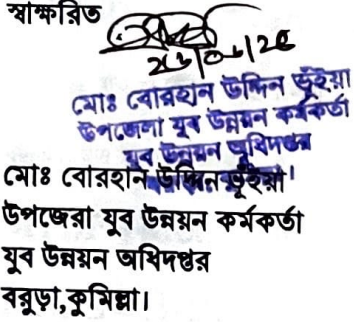 স্বাক্ষরিত
মোঃ বোরহান উদ্দিন ভূঁইয়া
উপজেলা যুব উন্নয়ন কর্মকর্তা
যুব উন্নয়ন অধিদপ্তর
মোঃ বোরহান উদ্দিন ভূঁইয়া
উপজেরা যুব উন্নয়ন কর্মকর্তা
যুব উন্নয়ন অধিদপ্তর
বরুড়া,কুমিল্লা।